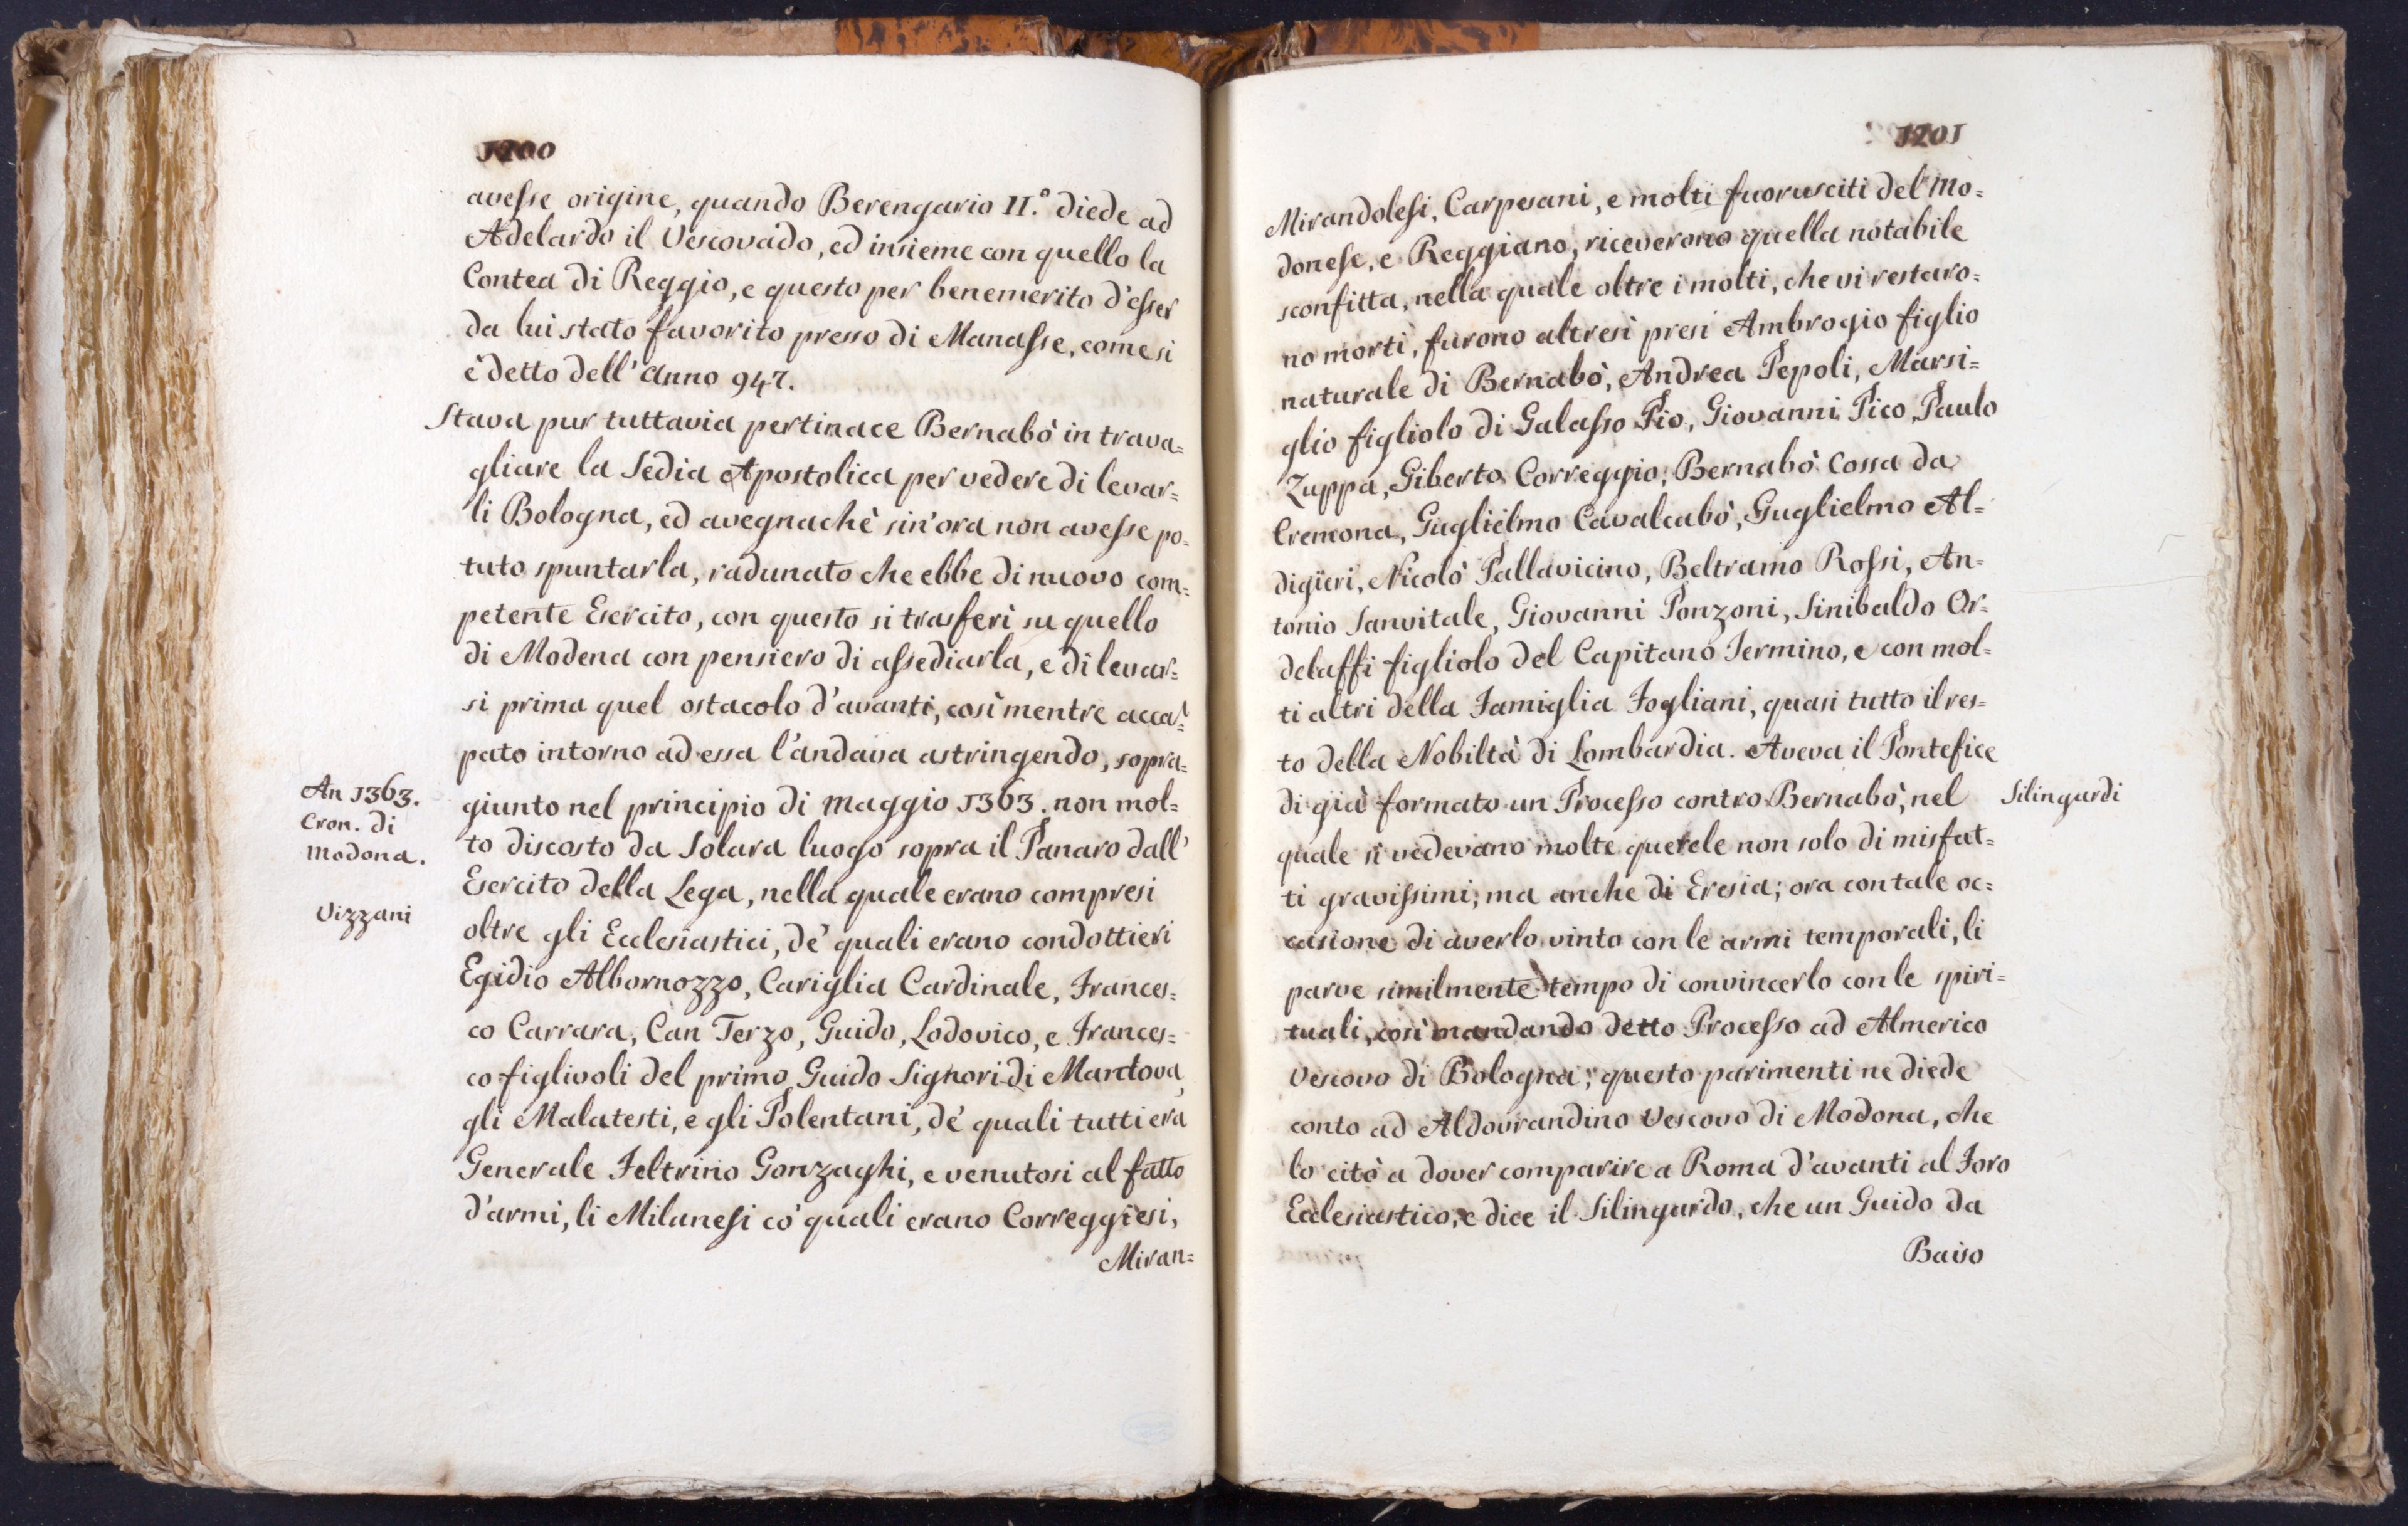 1200
avesse origine, quando Berengario II.° diede ad
Adelardo il Vescovado, ed insieme con quello la
Contea di Reggio, e questo per benemerito d'esser
da lui stato favorito presso di Manasse, come si
è detto dell'Anno 947.
Stava pur tuttavia pertinace Bernabò in trava=
gliare la Sedia Apostolica per vedere di levar=
li Bologna, ed avegnachè sin'ora non avesse po=
tuto spuntarla, radunato che ebbe di nuovo com=
petente Esercito, con questo si trasferì su quello
di Modena con pensiero di assediarla, e di levar=
si prima quel ostacolo d'avanti, così mentre acca=
pato intorno ad essa l'andava astringendo, sopra=
An 1363.
Cron. di
Modona.
Vizzani
giunto nel principio di Maggio 1363. non mol=
to discosto da Solara luogo sopra il Panaro dall'
Esercito della Lega, nella quale erano compresi
oltre gli Ecclesiastici, de' quali erano condottieri
Egidio Albornozzo, Cariglia Cardinale, Frances=
co Carrara, Can Terzo, Guido, Lodovico, e Frances=
co figlivoli del primo Guido Signori di Mantova,
gli Malatesti, e gli Polentani, de' quali tutti era
Generale Feltrino Gonzaghi, e venutosi al fatto
d'armi, li Milanesi co' quali erano Correggiesi,
Miran=
1201
Mirandolesi, Carpesani, e molti fuorusciti del Mo=
donese, e Reggiano, riceverono quella notabile
sconfitta, nella quale oltre i molti, che vi restaro=
no morti, furono altresì presi Ambrogio figlio
naturale di Bernabò, Andrea Pepoli, Marsi=
glio figliolo di Galasso Pio, Giovanni Pico, Paulo
Zuppa, Giberto Correggio, Bernabò Cossa da
Cremona, Guglielmo Cavalcabò, Guglielmo Al=
digieri, Nicolò Pallavicino, Beltramo Rossi, An=
tonio Sanvitale, Giovanni Ponzoni, Sinibaldo Or=
delaffi figliolo del Capitano Fermino, e con mol=
ti altri della Famiglia Fogliani, quasi tutto il res=
to della Nobiltà di Lombardia. Aveva il Pontefice
di già formato un Processo contro Bernabò, nel
Silingardi
quale si vedevano molte querele non solo di misfat=
ti gravissimi; ma anche di Eresia; ora con tale oc=
casione di averlo vinto con le armi temporali, li
parve similmente tempo di convincerlo con le spiri=
tuali, così mandando detto Processo ad Almerico
Vescovo di Bologna; questo parimenti ne diede
conto ad Aldovrandino Vescovo di Modona, che
lo citò a dover comparire a Roma d'avanti al Foro
Ecclesiastico, e dice il Silingardo, che un Guido da
Baiso